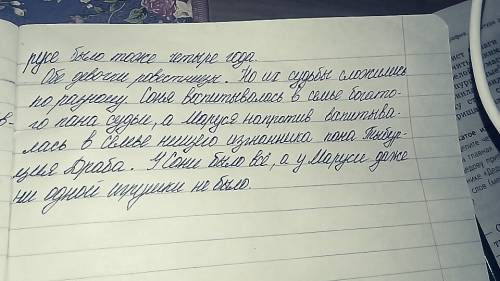 русе было тоже четыре года.
Обе девочки ровестницы. Но их судьбы сложились
по разному. Соня воспитывалась в семье богато-
го пана судьи, а Маруся напротив воспитыва-
лась в семье нищего изгнанника пана Тыбур-
ция Драба. У Сони было всё, а у Маруси даже
ни одной игрушки не было.